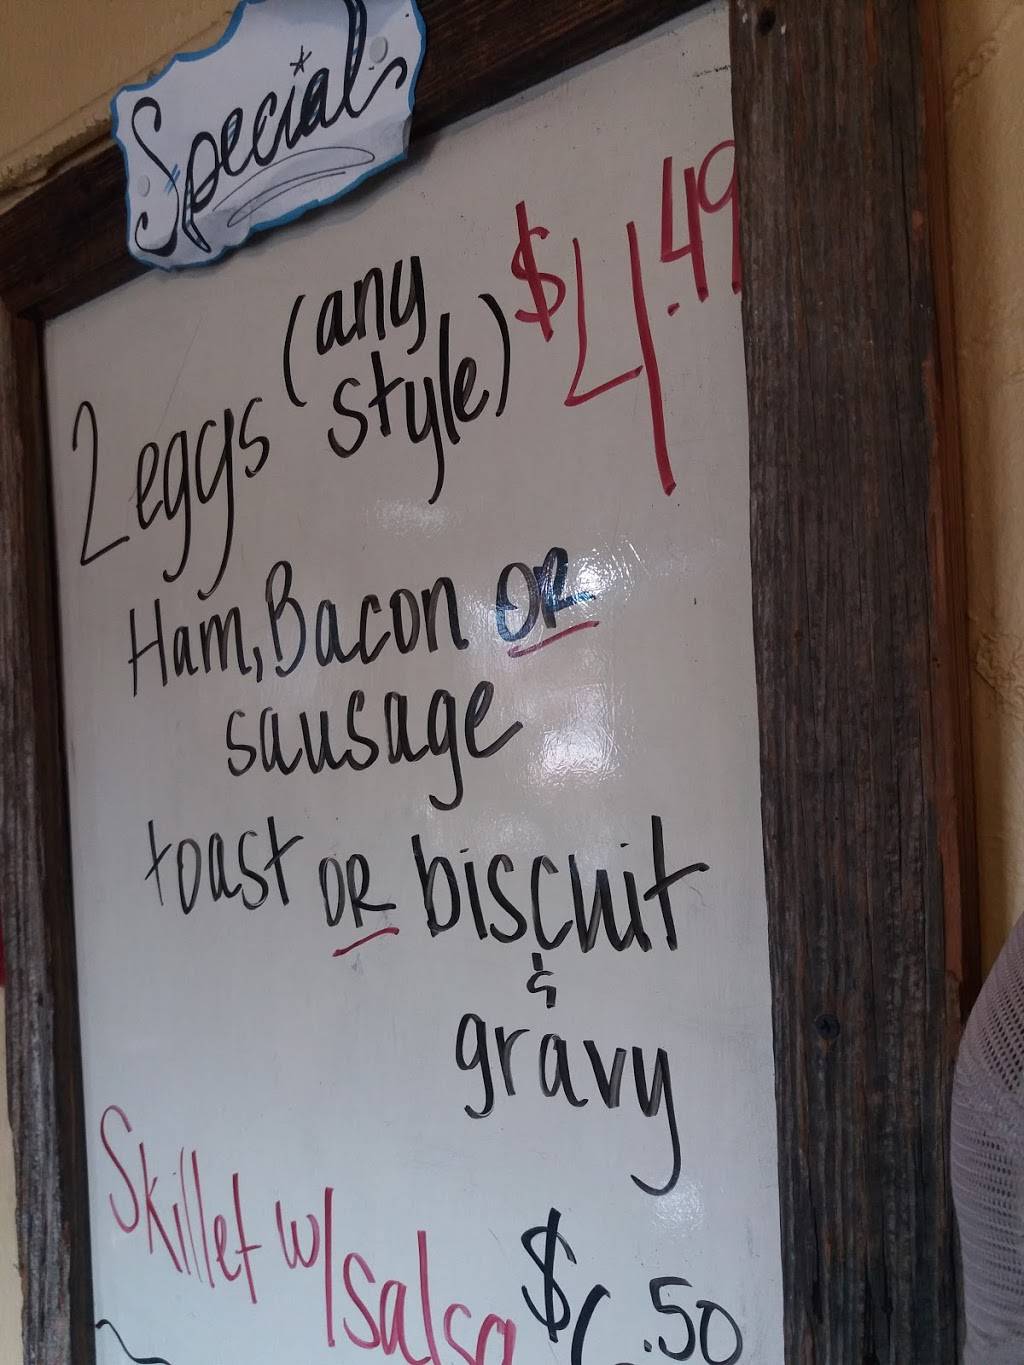 Special
2 eggs (any style) $4.49
Ham, Bacon OR
sausage
toast OR biscuit
&
gravy
Skillet w/ salsa $6.50